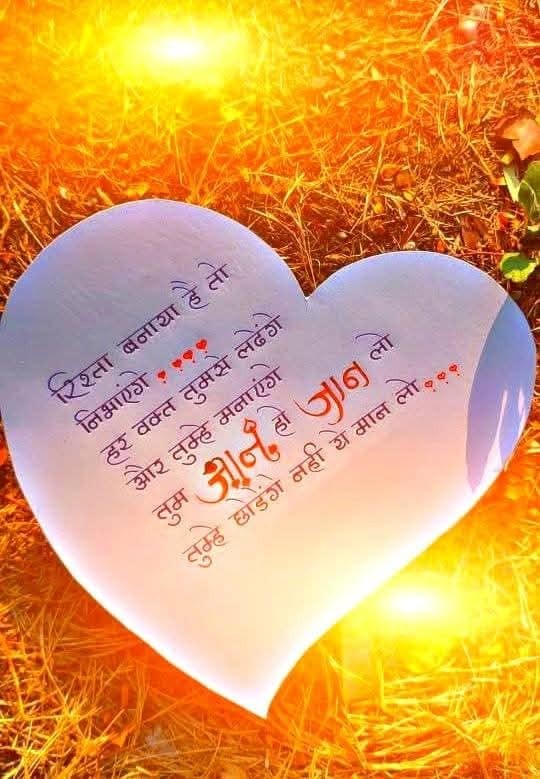 रिश्ता बनाया है तो
निभाएंगे
हर वक्त तुमसे लढेंगे
और तुम्हे मनाएंगे
तुम जान हो जान लो
तुम्हे छोडेंगे नही ये मान लो....